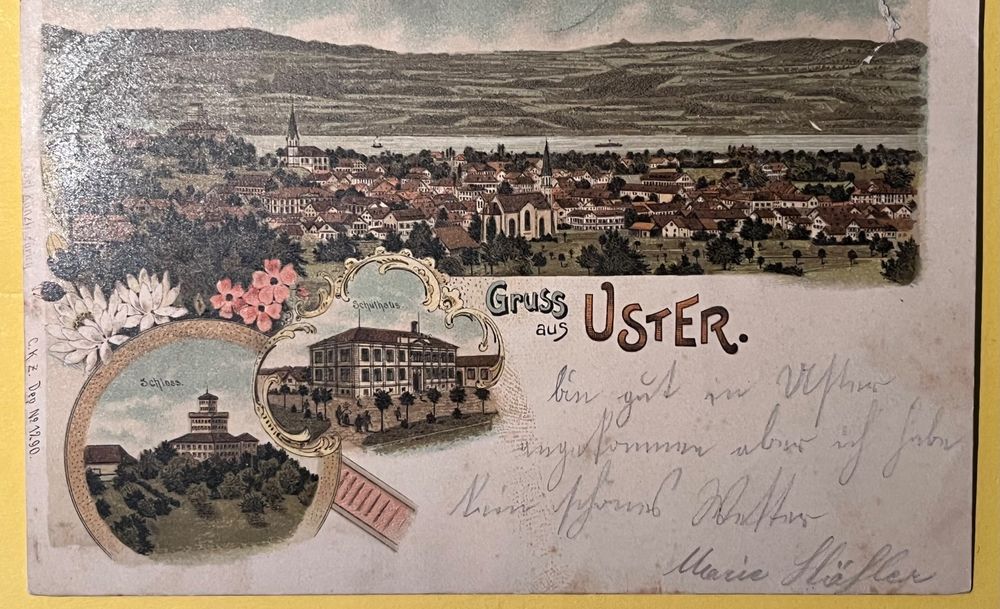 Schulhaus.
GRUSS
aus USTER.
Schloss.
C.K.Z. Dep. No 1290.
bin gut in Uster
angekommen aber ich habe
kein schönes Wetter
Marie